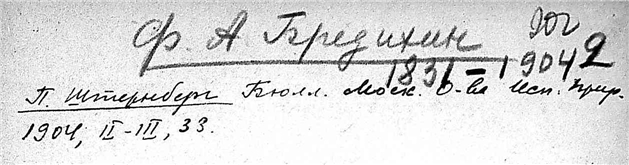 Ф. А. Бредихин
1831 – 1904 г
П. Штернберг Бюлл. Моск. О-ва Исп. Прир.
1904, II–III, 33.